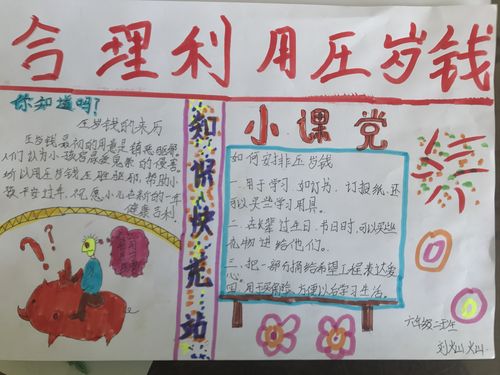 合理利用压岁钱
你知道吗?
压岁钱的来历
压岁钱最初的用意是镇恶驱邪。
人们认为小孩容易受鬼祟的侵害
所以用压岁钱压祟驱邪，帮助小
孩平安过年，祝愿小儿在新的一年
健康吉利
知识快充站
小课堂
如何安排压岁钱
一、用于学习 如灯书、订报纸、还
可以买些学习用具。
二、在长辈过生日、节日时，可以买些
礼物送给他们。
三、把一部分捐给希望工程表达爱
心。
方便以后学习生活。
六年级二班
刘灿灿